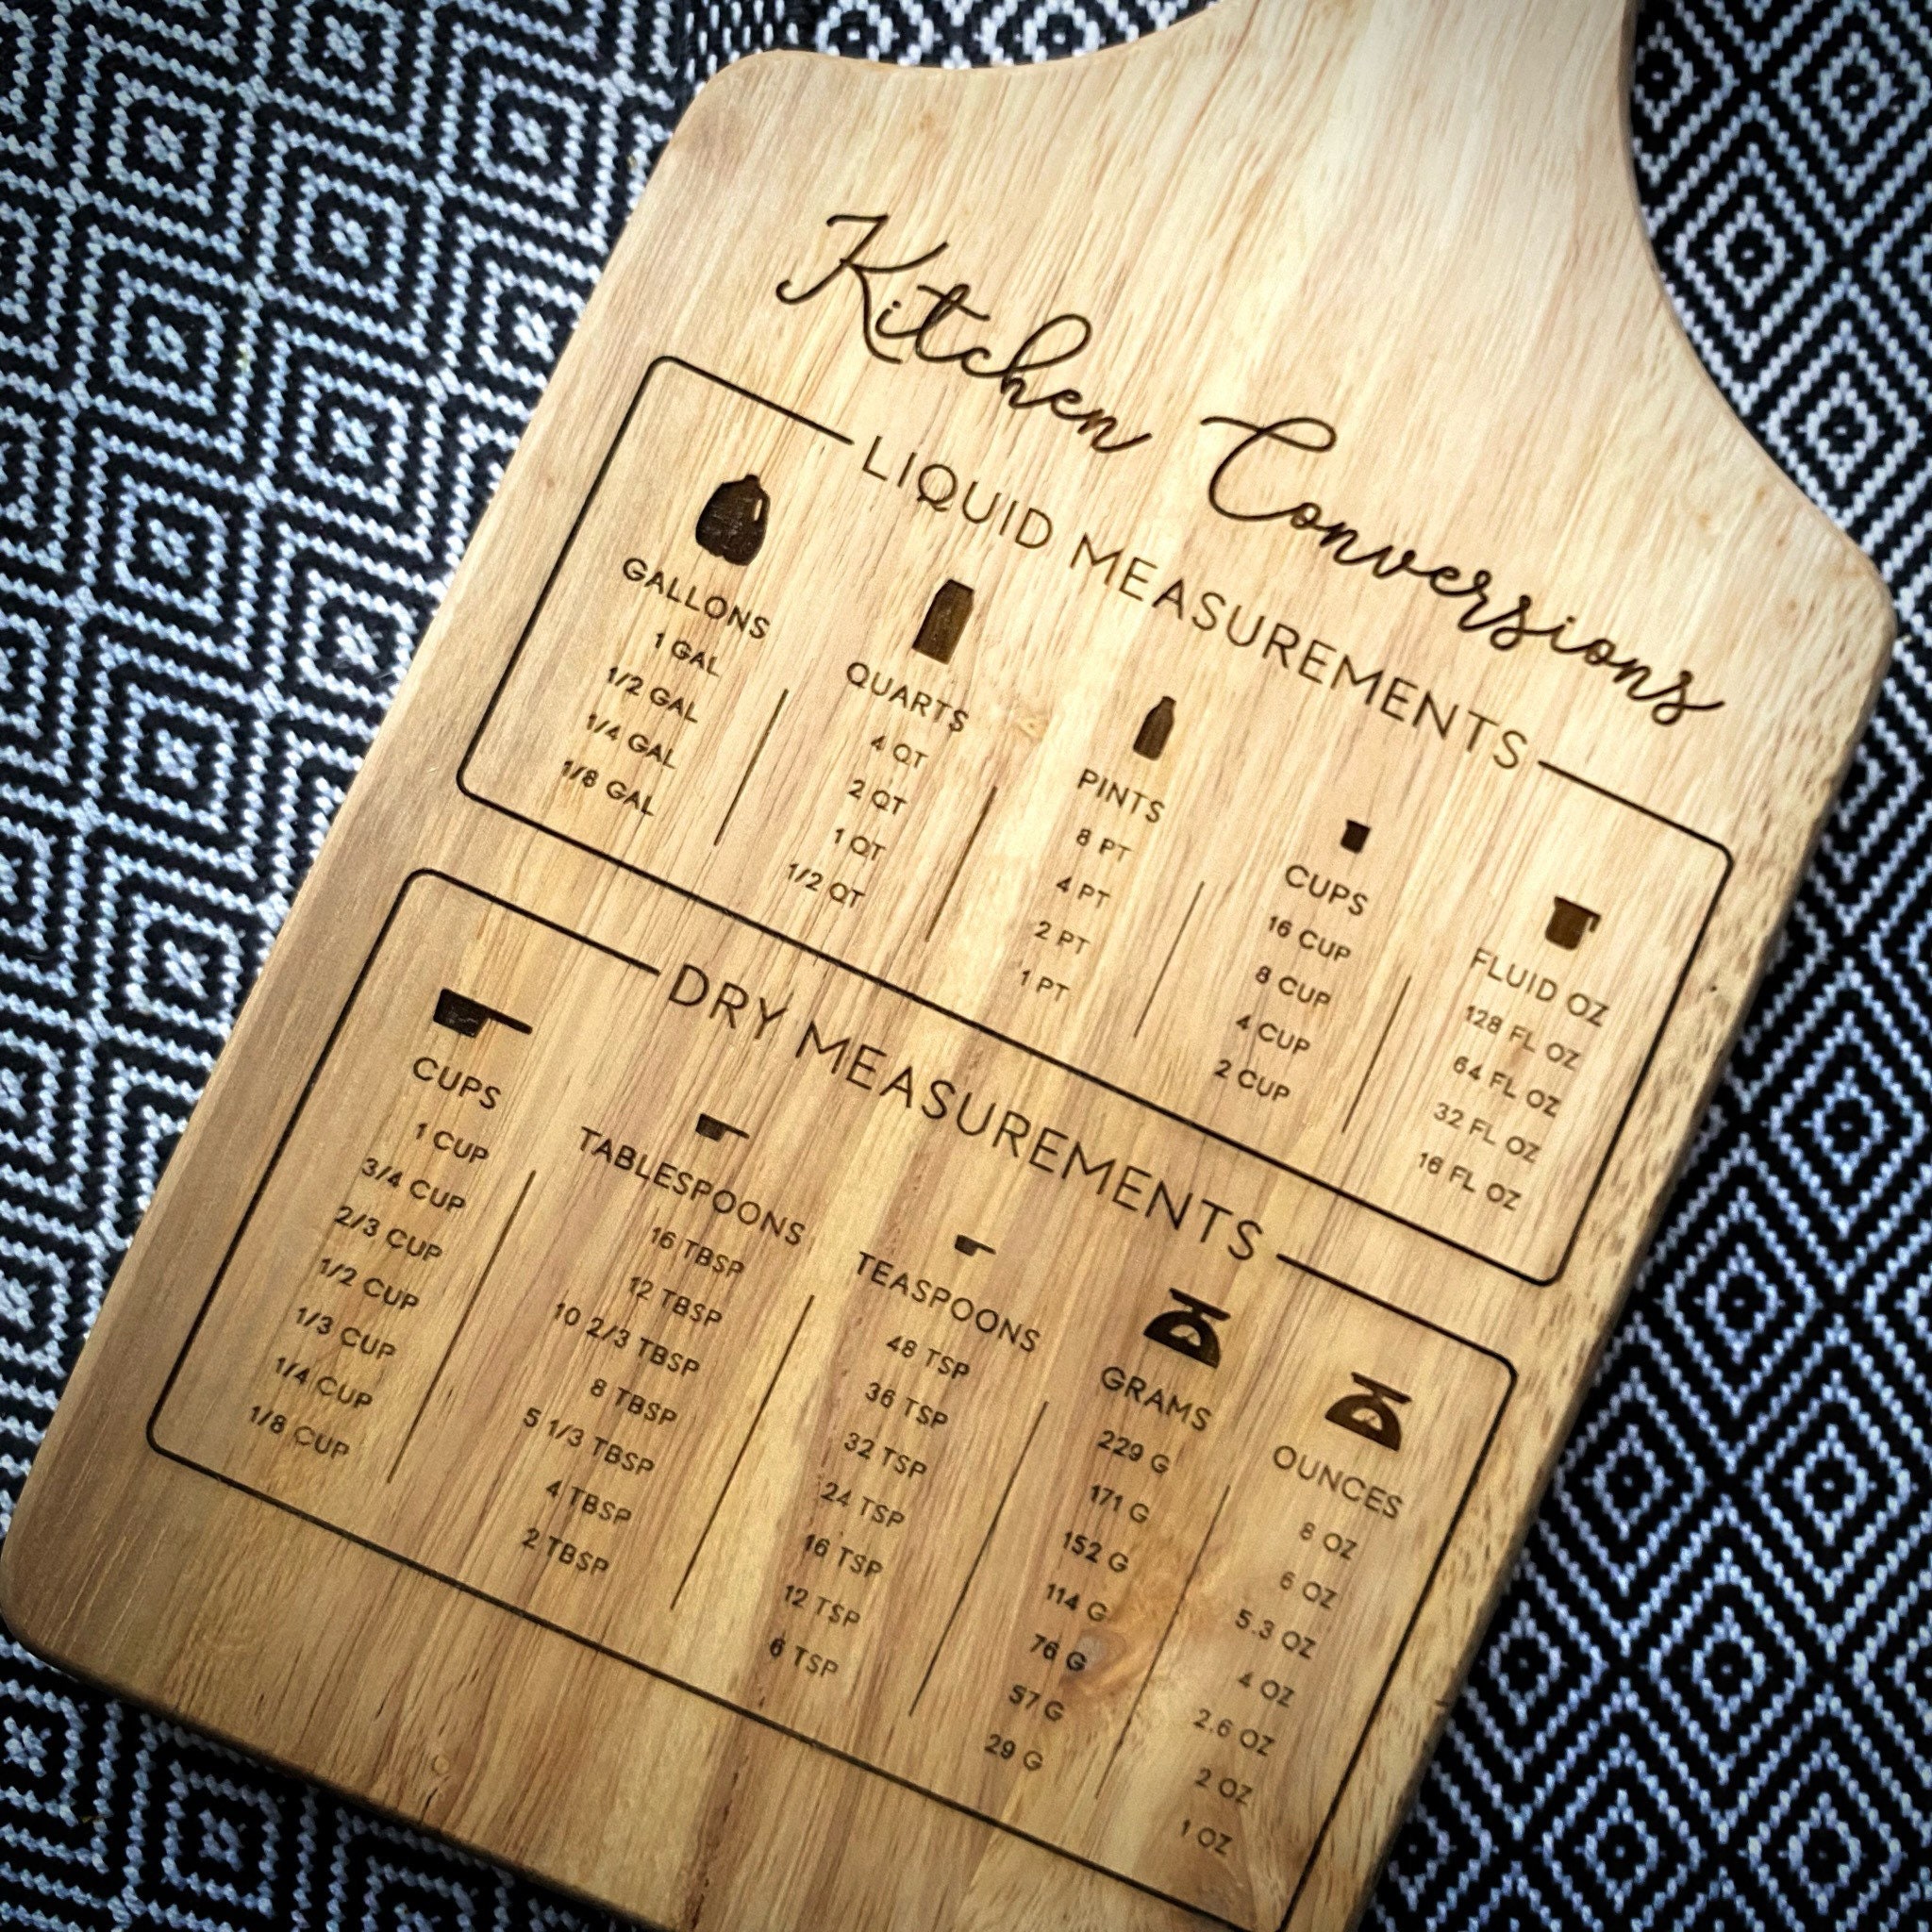 Kitchen Conversions
LIQUID MEASUREMENTS
GALLONS QUARTS PINTS CUPS FLUID OZ
1 GAL 4 QT 8 PT 16 CUP 128 FL OZ
1/2 GAL 2 QT 4 PT 8 CUP 64 FL OZ
1/4 GAL 1 QT 2 PT 4 CUP 32 FL OZ
1/8 GAL 1/2 QT 1 PT 2 CUP 16 FL OZ
DRY MEASUREMENTS
CUPS TABLESPOONS TEASPOONS GRAMS OUNCES
1 CUP 16 TBSP 48 TSP 229 G 8 OZ
3/4 CUP 12 TBSP 36 TSP 171 G 6 OZ
2/3 CUP 10 2/3 TBSP 32 TSP 152 G 5.3 OZ
1/2 CUP 8 TBSP 24 TSP 114 G 4 OZ
1/3 CUP 5 1/3 TBSP 16 TSP 76 G 2.6 OZ
1/4 CUP 4 TBSP 12 TSP 57 G 2 OZ
1/8 CUP 2 TBSP 6 TSP 29 G 1 OZ